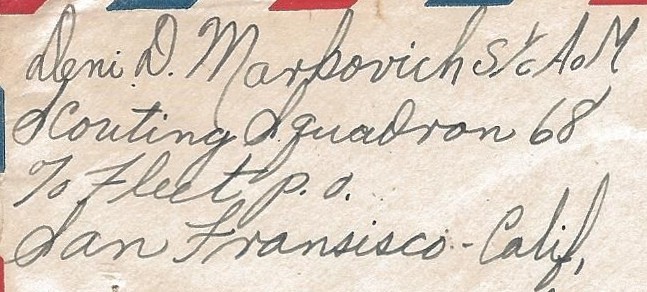 Deni D. Markovich S 1/c A.O.M
Scouting Squadron 68
℅ Fleet P.O.
San Fransisco - Calif,